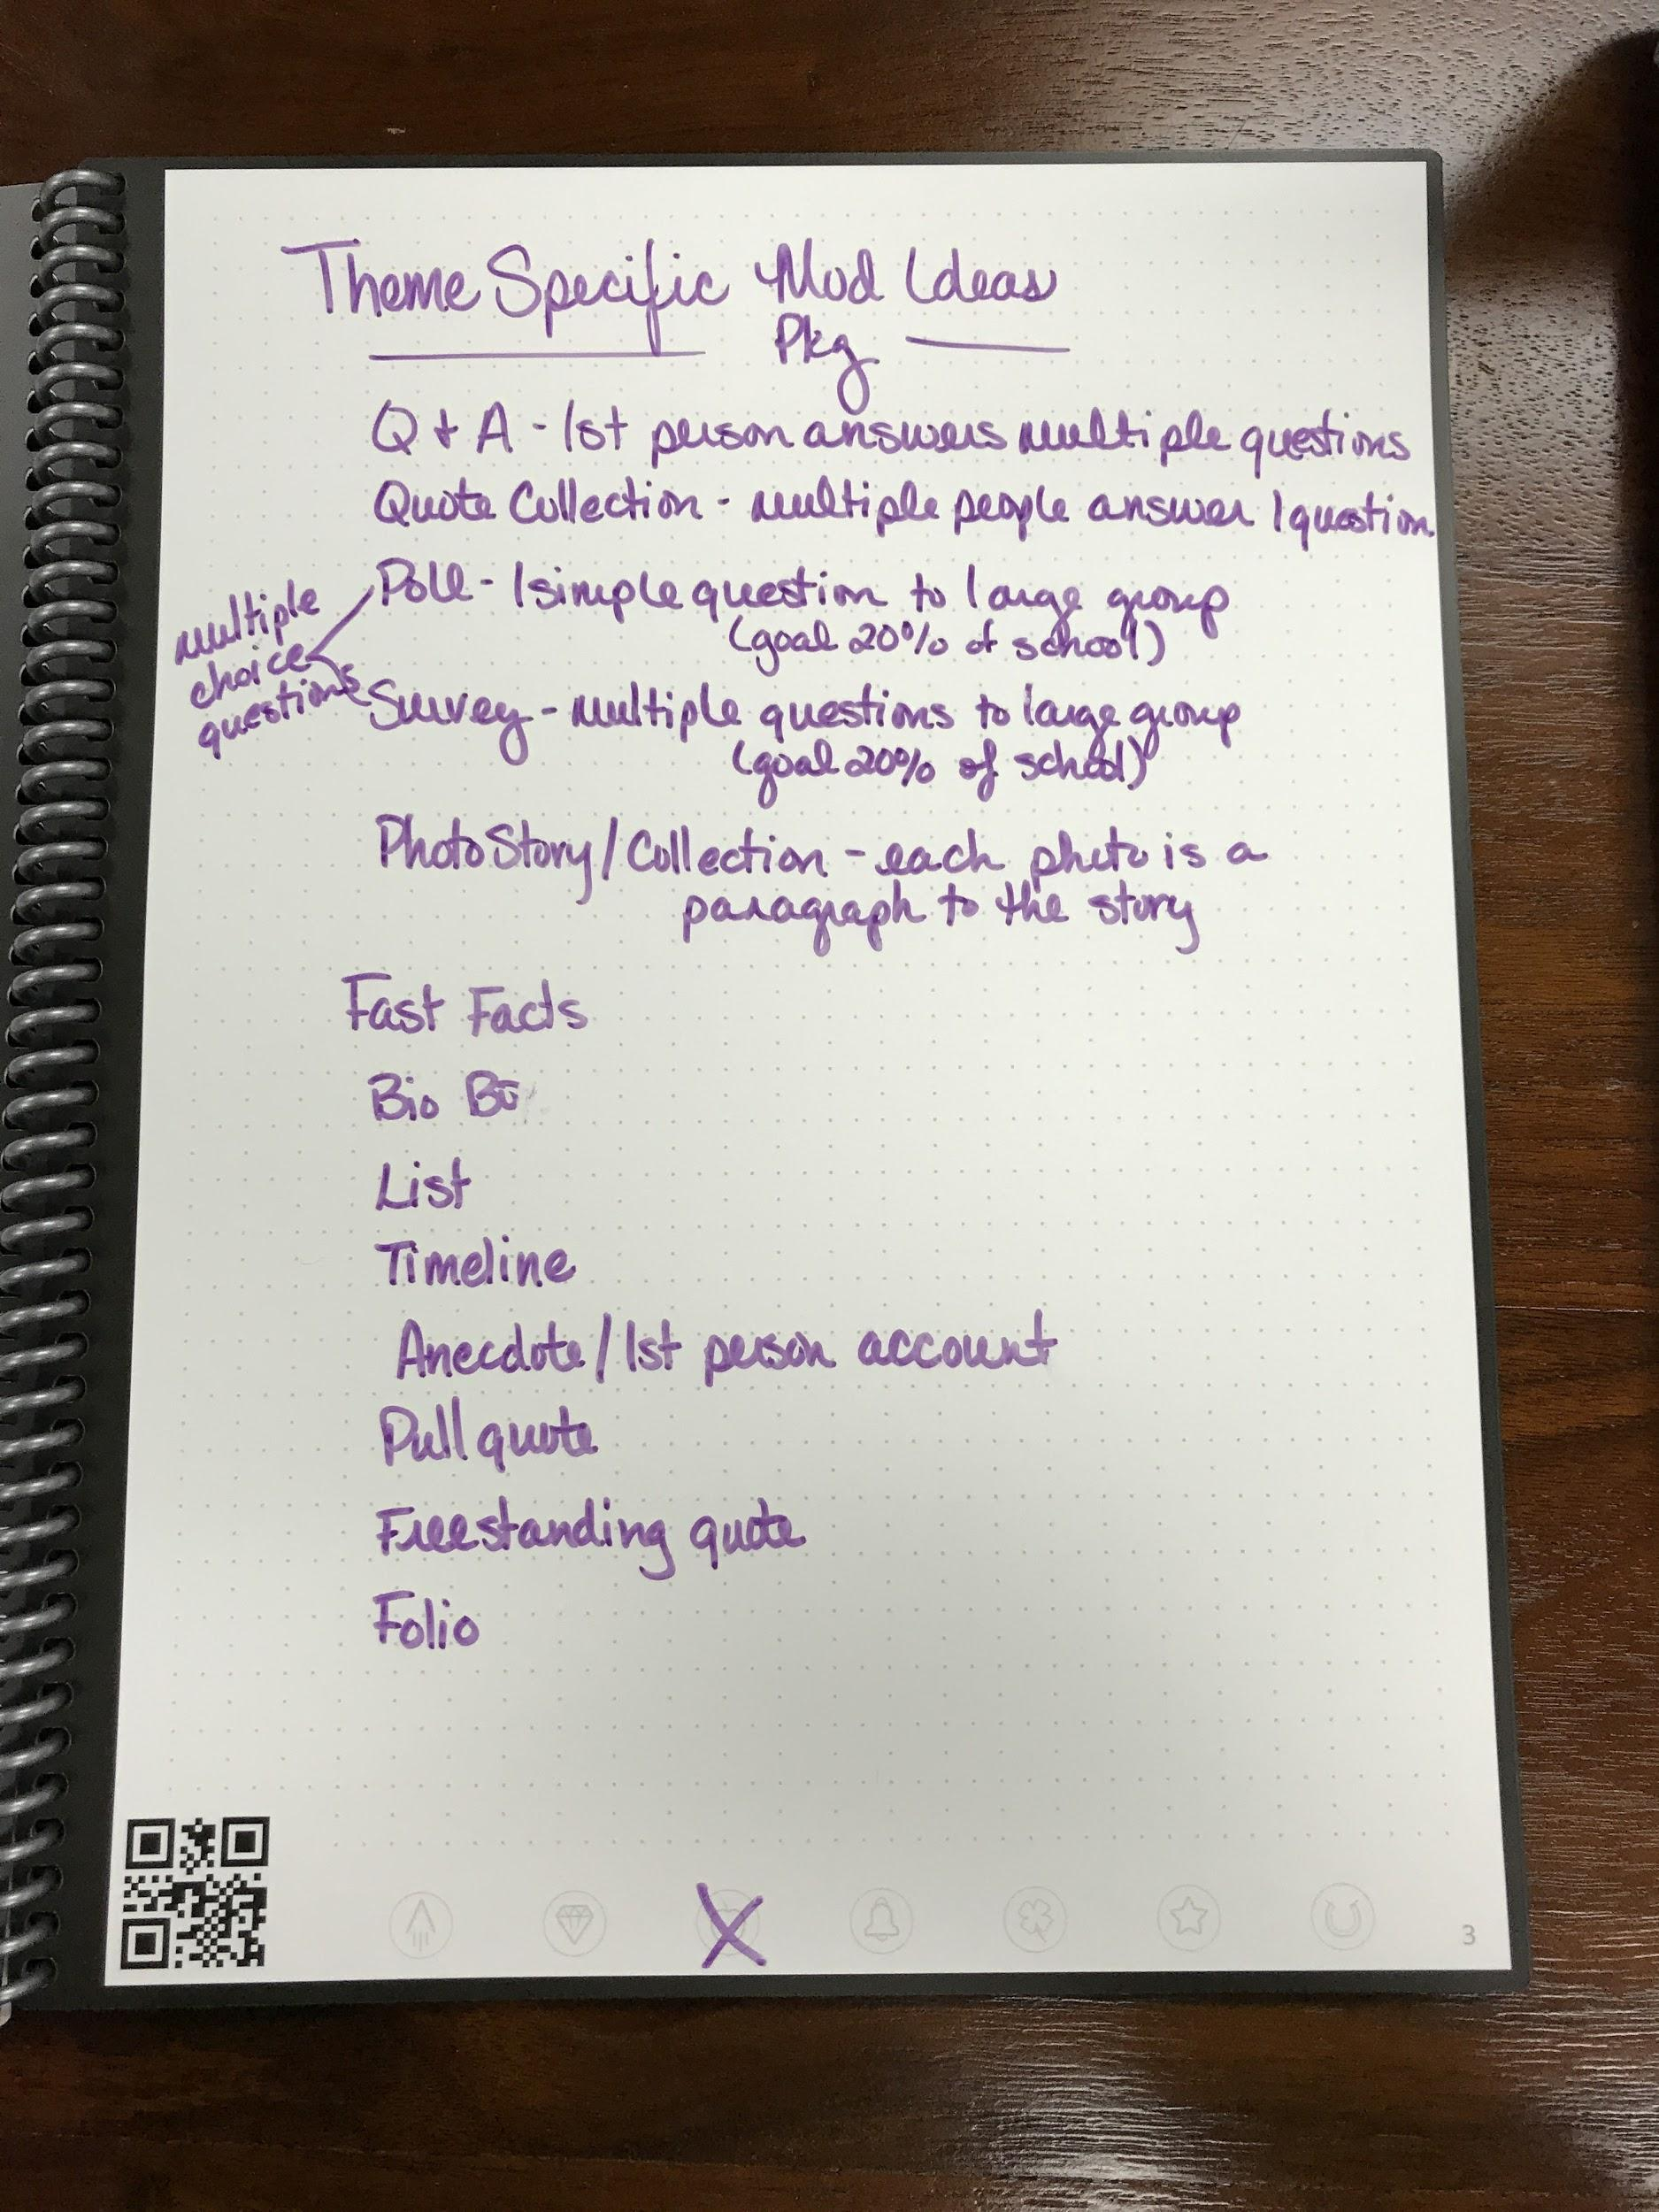 Theme Specific Mod Ideas
Pkg
Q + A - 1st person answers multiple questions
Quote Collection - multiple people answer 1 question
multiple
choice
questions
Poll - 1 simple question to large group
(goal 20% of school)
Survey - multiple questions to large group
(goal 20% of school)
Photo Story/Collection - each photo is a
paragraph to the story
Fast Facts
Bio
List
Timeline
Anecdote/1st person account
Pull quote
Freestanding quote
Folio
X
3